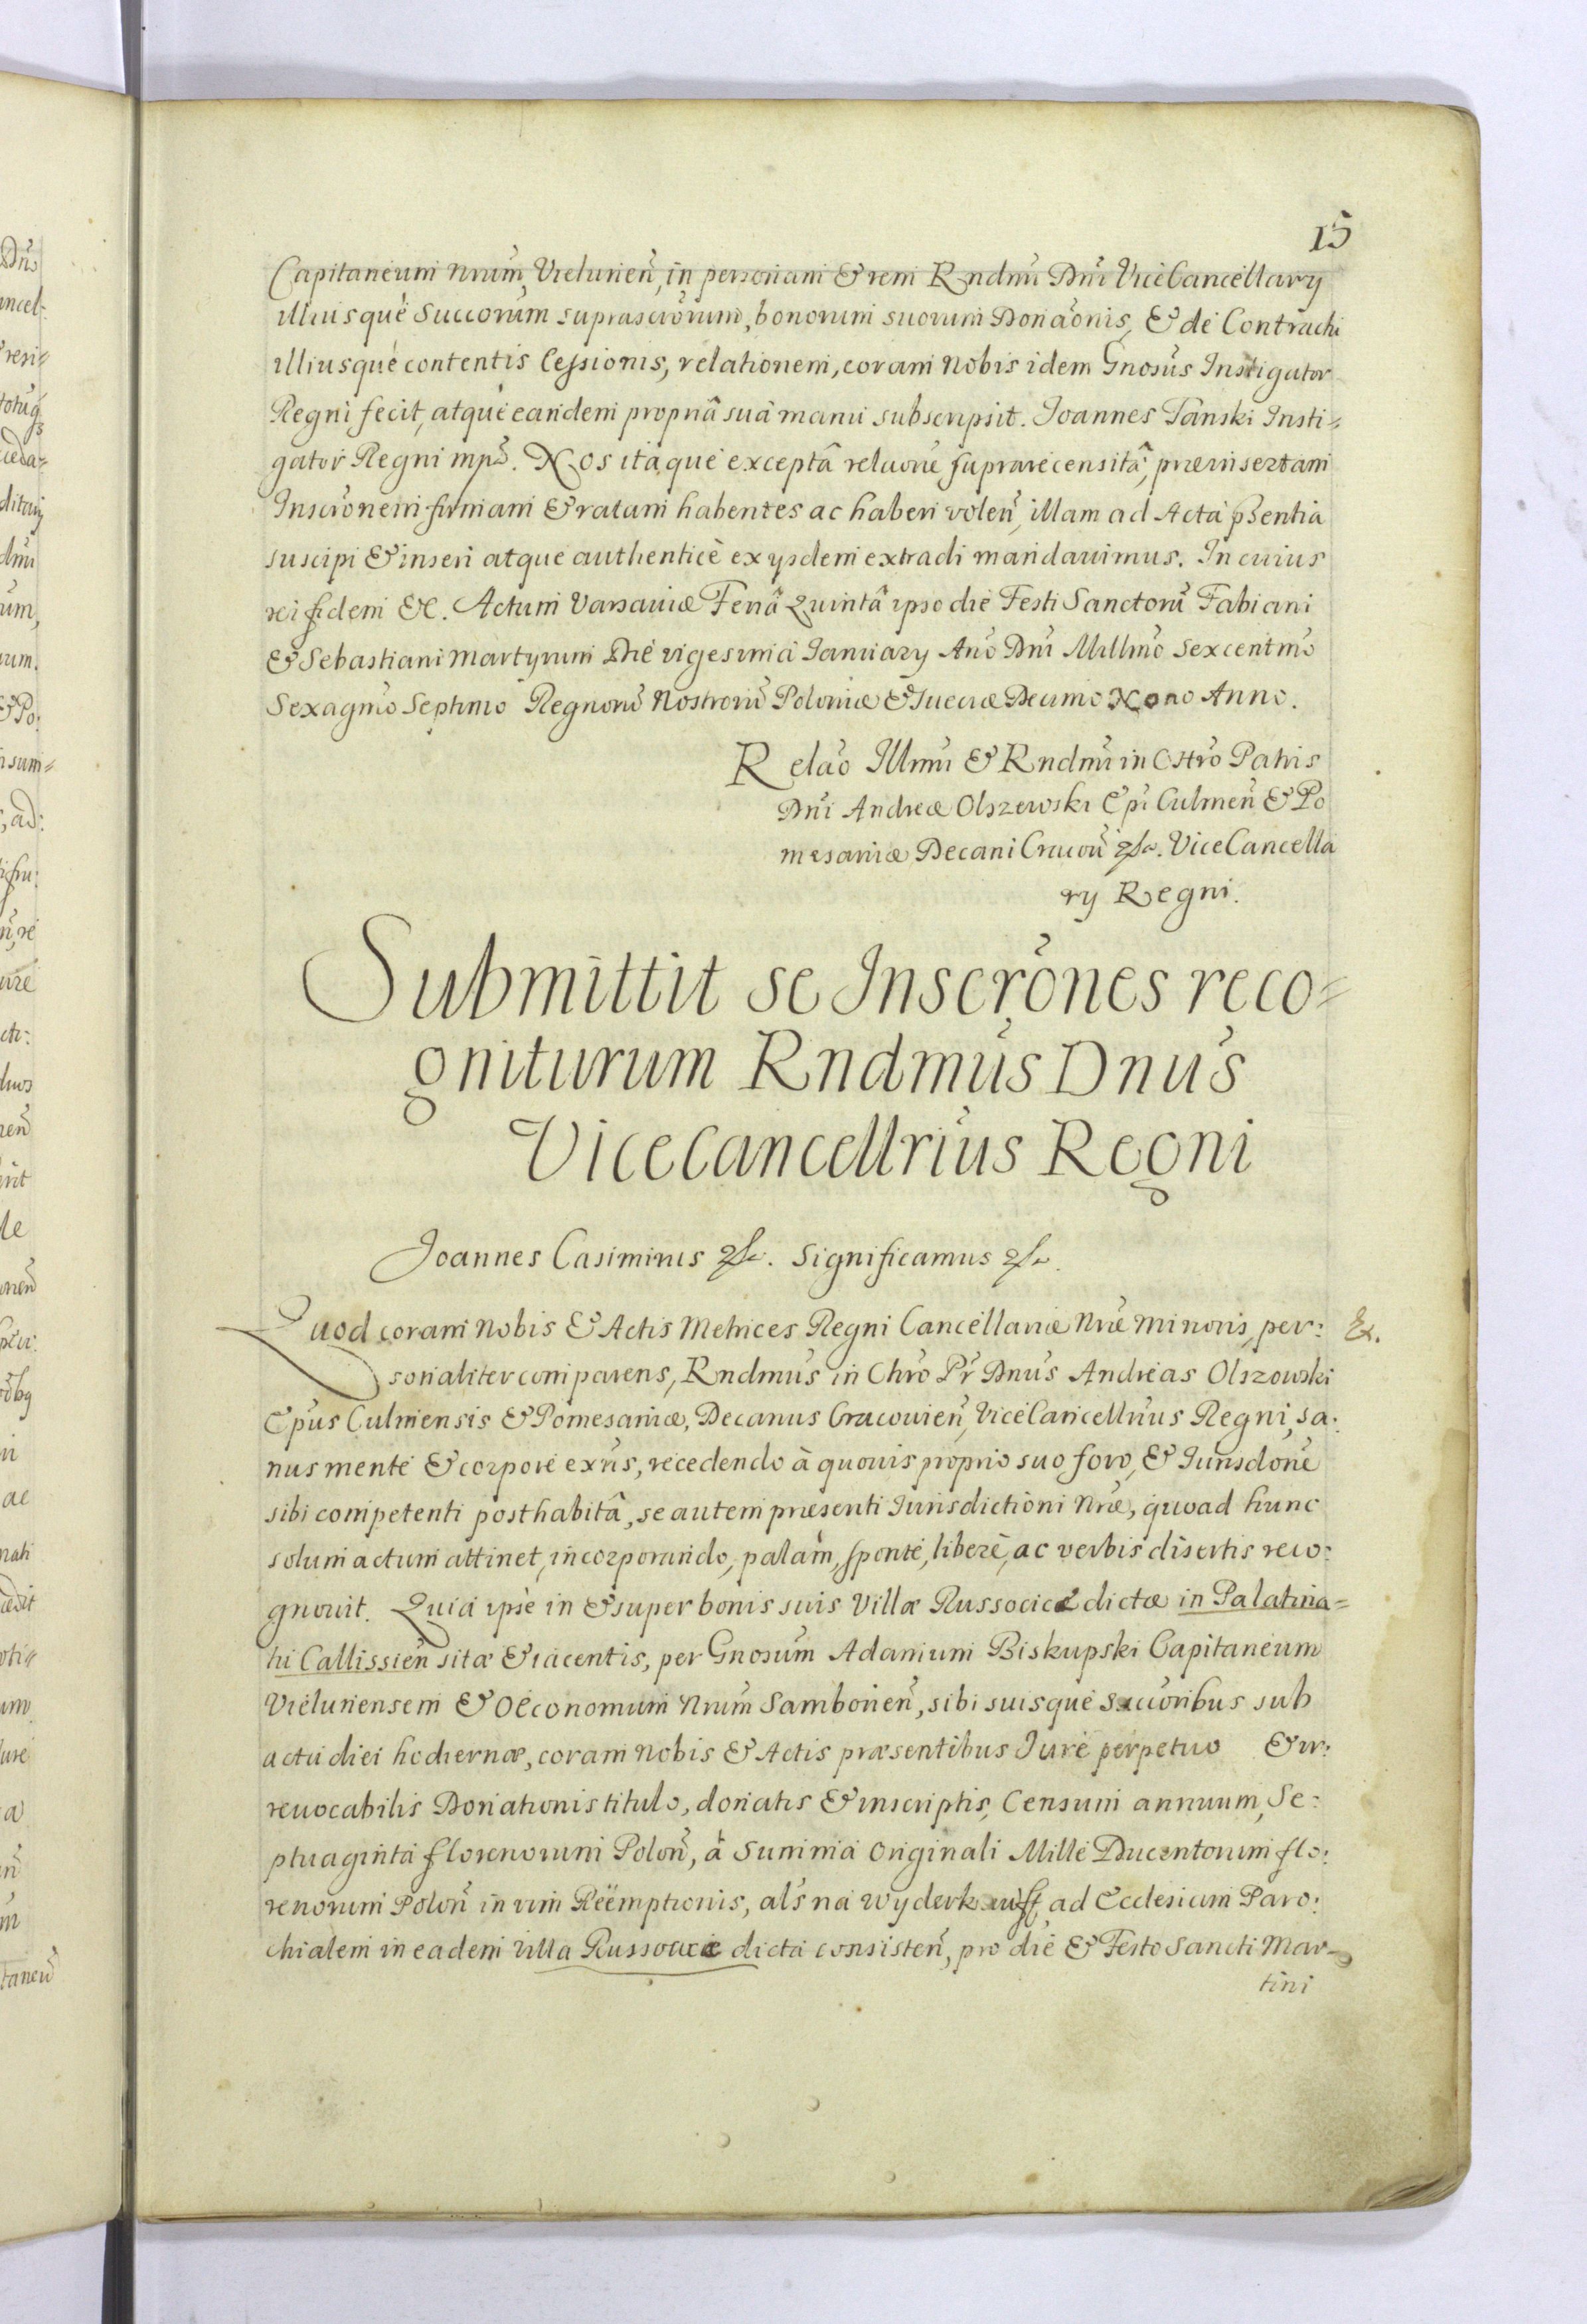 15
Capitaneum Nrum, Vielunen̄, in personam & rem Rndmi Dni ViceCancellarij
illiusque Succorum suprascrorum, bonorum suorum Donaonis, & de Contractu
illiusque contentis Cessionis, relationem, coram Nobis idem Gnosus Instigator
Regni fecit, atque eandem propriâ suâ manu subscripsit. Joannes Tanski Insti=
gator Regni mpo. Nos itaque exceptâ relaone suprarecensitâ, præinsertam
Inscronem firmam & ratam habentes ac haberi volen̄, illam ad Acta pꝛentia
suscipi & inseri atque authenticè ex ijsdem extradi mandavimus. In cuius
rei fidem &c. Actum Varsaviæ Feriâ Quintâ ipso die Festi Sanctorū Fabiani
& Sebastiani Martyrum Die vigesima Ianuarij Ano Dni Millmo Sexcentmo
Sexagmo Septimo Regnorū Nostrorū Poloniæ & Sueciæ Decimo Nono Anno.
Relao Illmi & Rndmi in Chro Patris
Dni Andreæ Olszewski Epi Culmen̄ & Po
mesaniæ Decani Cracon̄ &c. ViceCancella
rij Regni.
Submittit se Inscrones reco=
gniturum Rndmus Dnus
ViceCancellrius Regni
Joannes Casimirus &c. Significamus &c.
Quod coram Nobis & Actis Metrices Regni Cancellariæ Nræ Minoris, per: Ex.
sonaliter comparens, Rndmus in Chro Pr Dnus Andreas Olszowski
Epus Culmensis & Pomesaniæ, Decanus Cracovien̄, ViceCancellrius Regni, sa:
nus mente & corpore exns, recedendo à quovis proprio suo foro, & Iurisdone
sibi competenti posthabitâ, se autem præsenti Iurisdictioni Nræ, quoad hunc
solum actum attinet, incorporando, palàm, sponte, liberè, ac verbis disertis reco:
gnovit. Quia ipse in & super bonis suis Villæ Russocice dictæ in Palatina=
tu Callissien̄ sitæ & iacentis, per Gnosum Adamum Biskupski Capitaneum
Vielunensem & Oeconomum Nrum Samborien̄, sibi suisque succoribus sub
actu diei hodiernæ, coram Nobis & Actis præsentibus Iure perpetuo & ir:
revocabilis Donationis titulo, donatis & inscriptis, Censum annuum, Se:
ptuaginta florenorum Polon̄, à Summa originali Mille Ducentorum flo:
renorum Polon̄ in vim Reëmptionis, als na wyderkauff, ad Ecclesiam Paro:
chialem in eadem Villa Russocice dicta consisten̄, pro die & Festo Sancti Mar-
tini